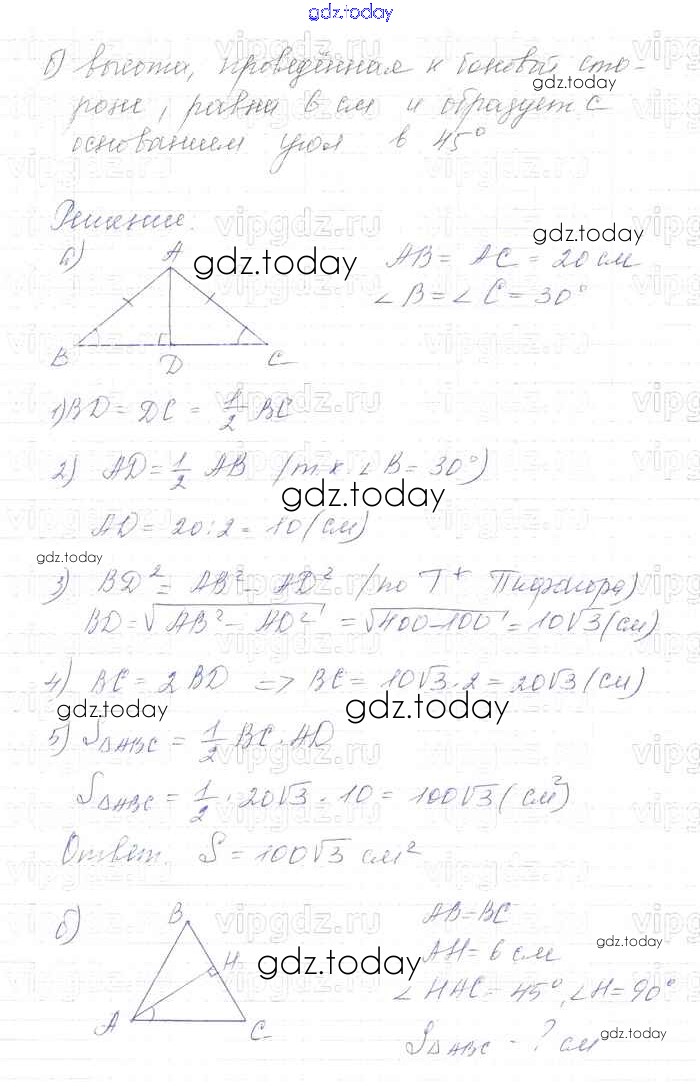 gdz.today
б) высота, проведённая к боковой сто-
gdz.today
роне, равна 6 см и образует с
основанием угол в 45°
vipgdz.ru
Решение.
gdz.today
а) A
gdz.today
AB = AC = 20 см
∠B = ∠C = 30°
B D C
1) BD = DC = 1/2 BC
2) AD = 1/2 AB (т.к. ∠B = 30°)
gdz.today
AD = 20:2 = 10 (см)
gdz.today
3) BD² = AB² - AD² (по Т+ Пифагора)
BD = √AB² - AD² = √400-100 = 10√3 (см)
4) BC = 2 BD => BC = 10√3·2 = 20√3 (см)
gdz.today gdz.today
5) S△ABC = 1/2 BC · AD
S△ABC = 1/2 · 20√3 · 10 = 100√3 (см²)
Ответ. S = 100√3 см²
vipgdz.ru
б) B
AB = BC
gdz.today
H
gdz.today
AH = 6 см
∠HAC = 45°, ∠H = 90°
A C
gdz.today
S△ABC - ? см